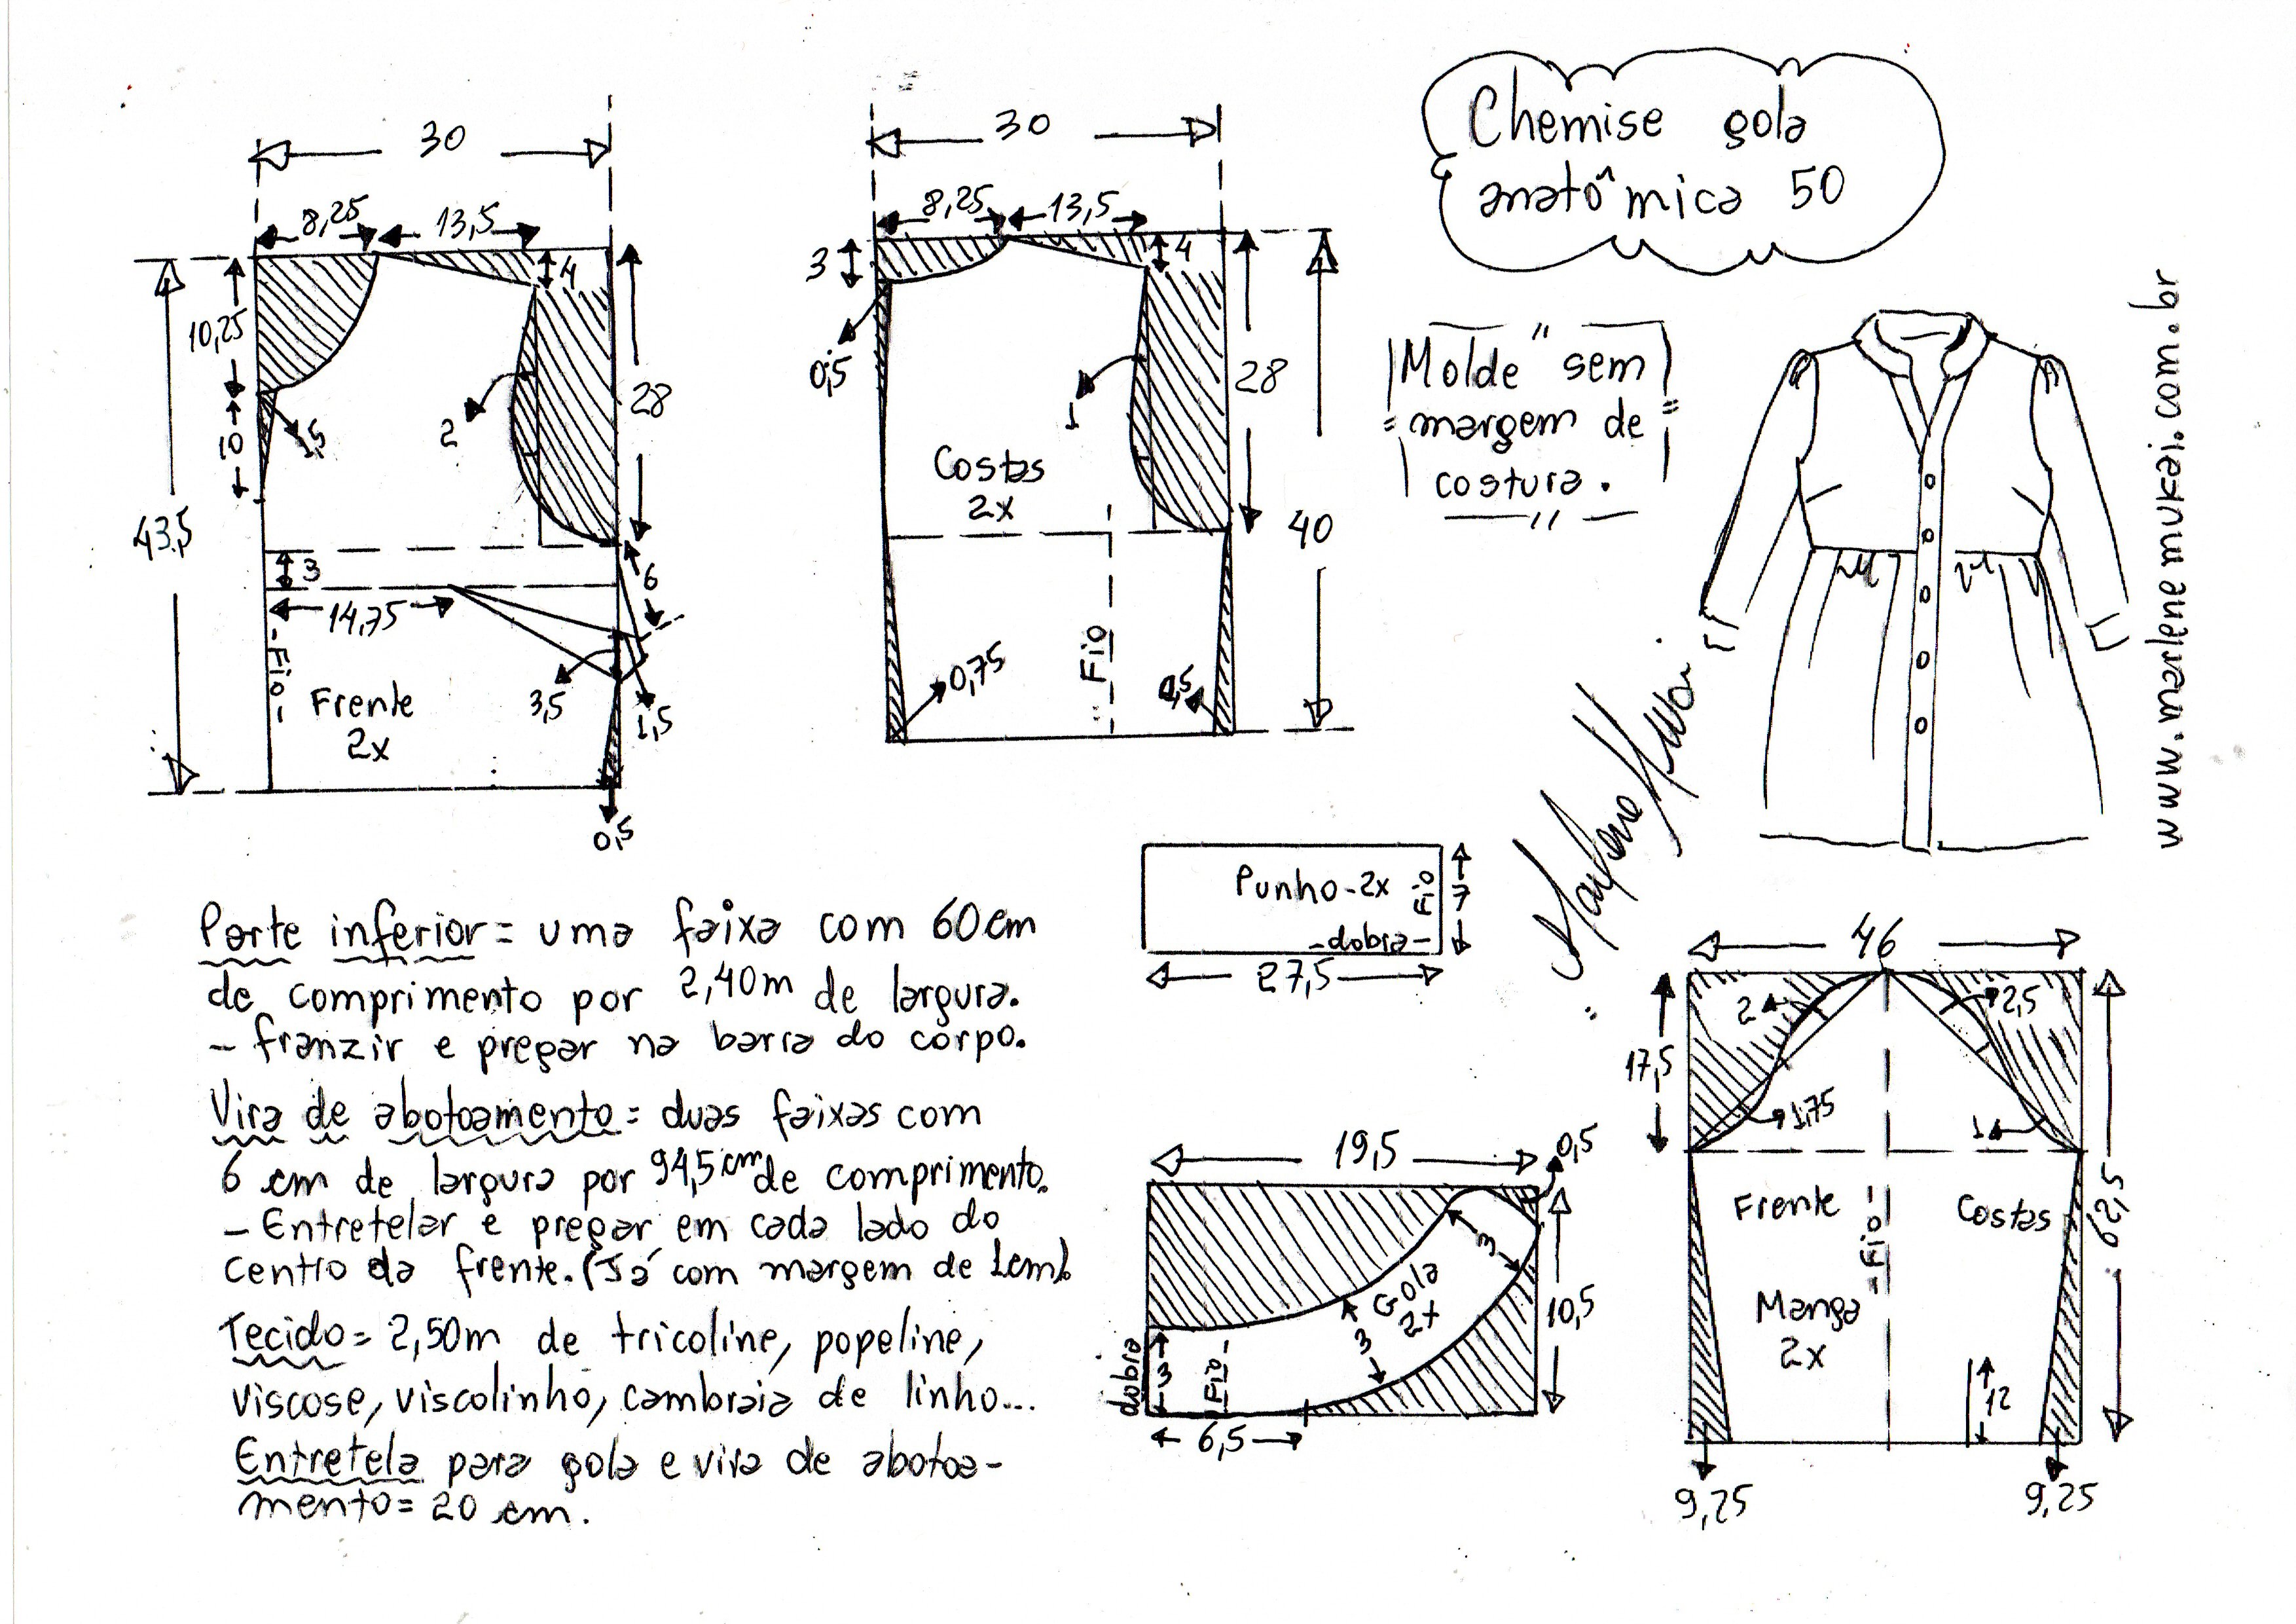 Chemise gola
anatômica 50
"Molde" sem
margem de
costura.
www.marlenemukai.com.br
Marlene Mukai
30
8,25
13,5
4
10,25
10
1,5
2
28
43,5
3
14,75
6
3,5
1,5
0,5
-Fio-
Frente
2x
30
8,25
13,5
3
4
0,5
1
28
40
Costas
2x
Fio
0,75
0,5
Parte inferior = uma faixa com 60cm
de comprimento por 2,40m de largura.
- franzir e pregar na barra do corpo.
Vira de abotoamento = duas faixas com
6 cm de largura por 94,5cm de comprimento.
- Entretelar e pregar em cada lado do
centro da frente. (Já com margem de 1cm).
Tecido = 2,50m de tricoline, popeline,
viscose, viscolinho, cambraia de linho...
Entretela para gola e vira de abotoa-
mento = 20 cm.
Punho-2x
Fio
7
-dobra-
27,5
19,5
0,5
3
Gola
2x
3
10,5
dobra
3
Fio-
6,5
46
2
2,5
17,5
1,75
1
62,5
Frente
Costas
-Fio-
Manga
2x
12
9,25
9,25